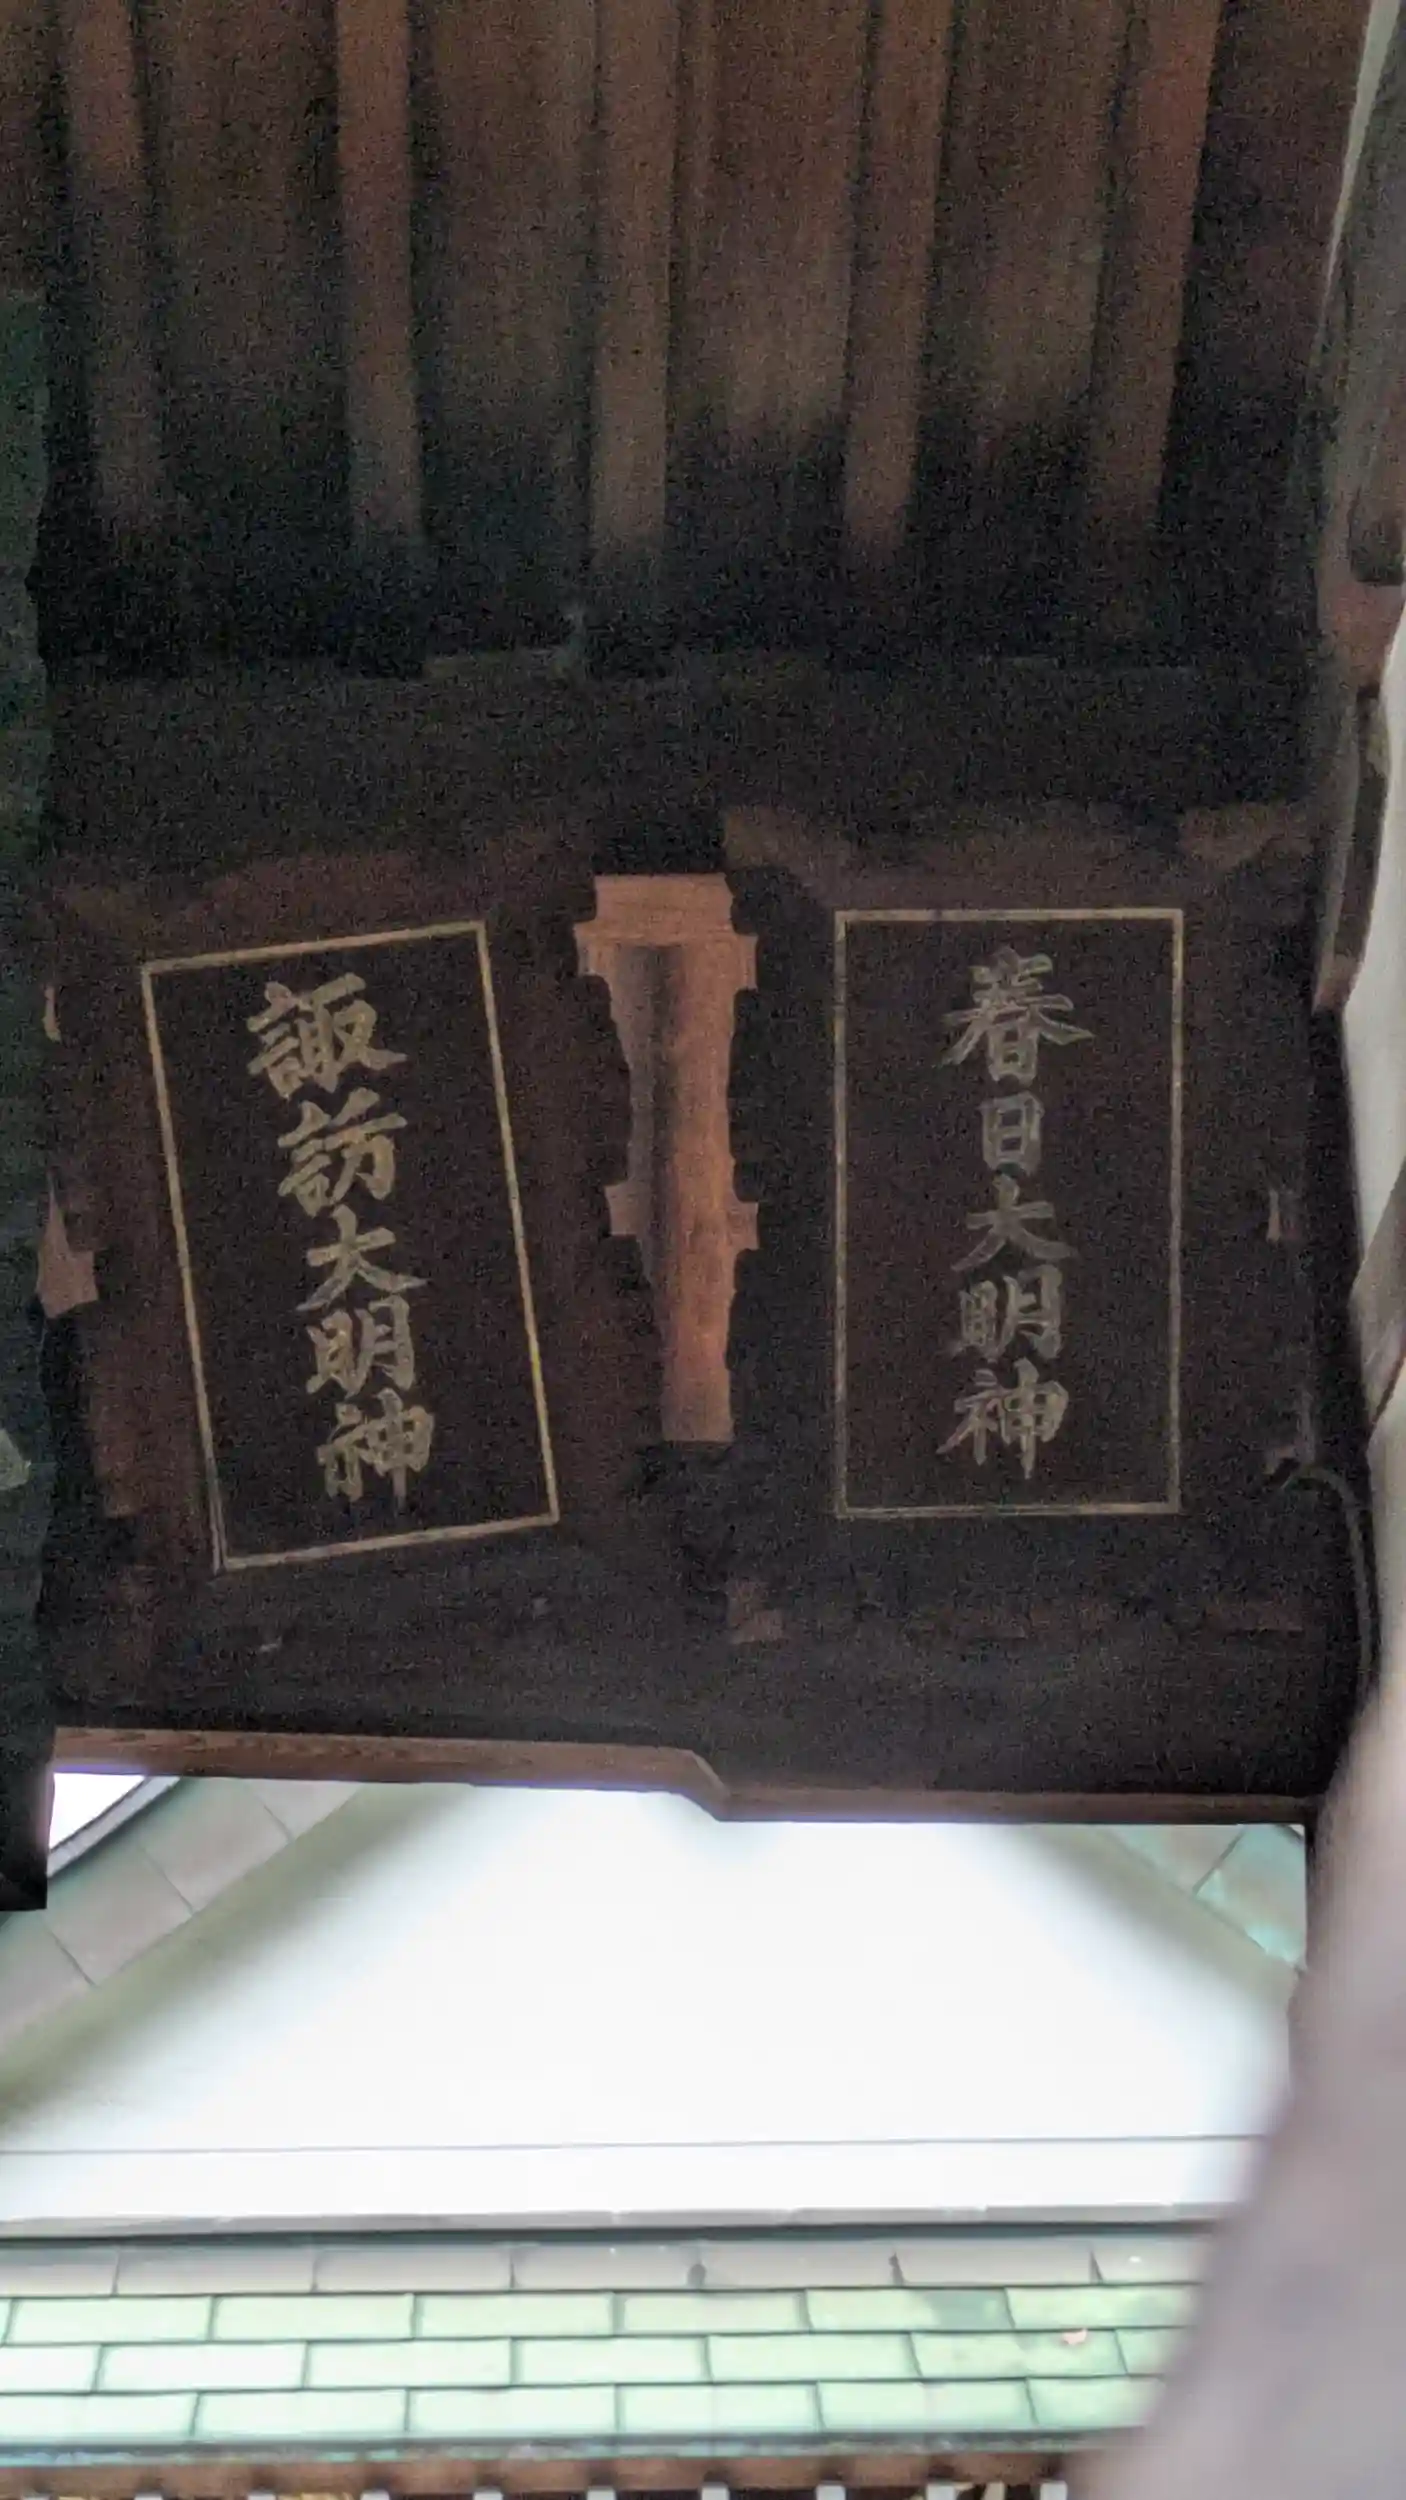 春日大明神
諏訪大明神